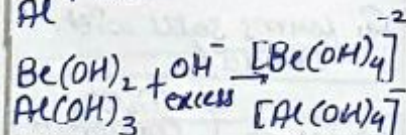 Al
Be(OH)₂ + OH⁻ excess → [Be(OH)₄]⁻²
Al(OH)₃ [Al(OH)₄]